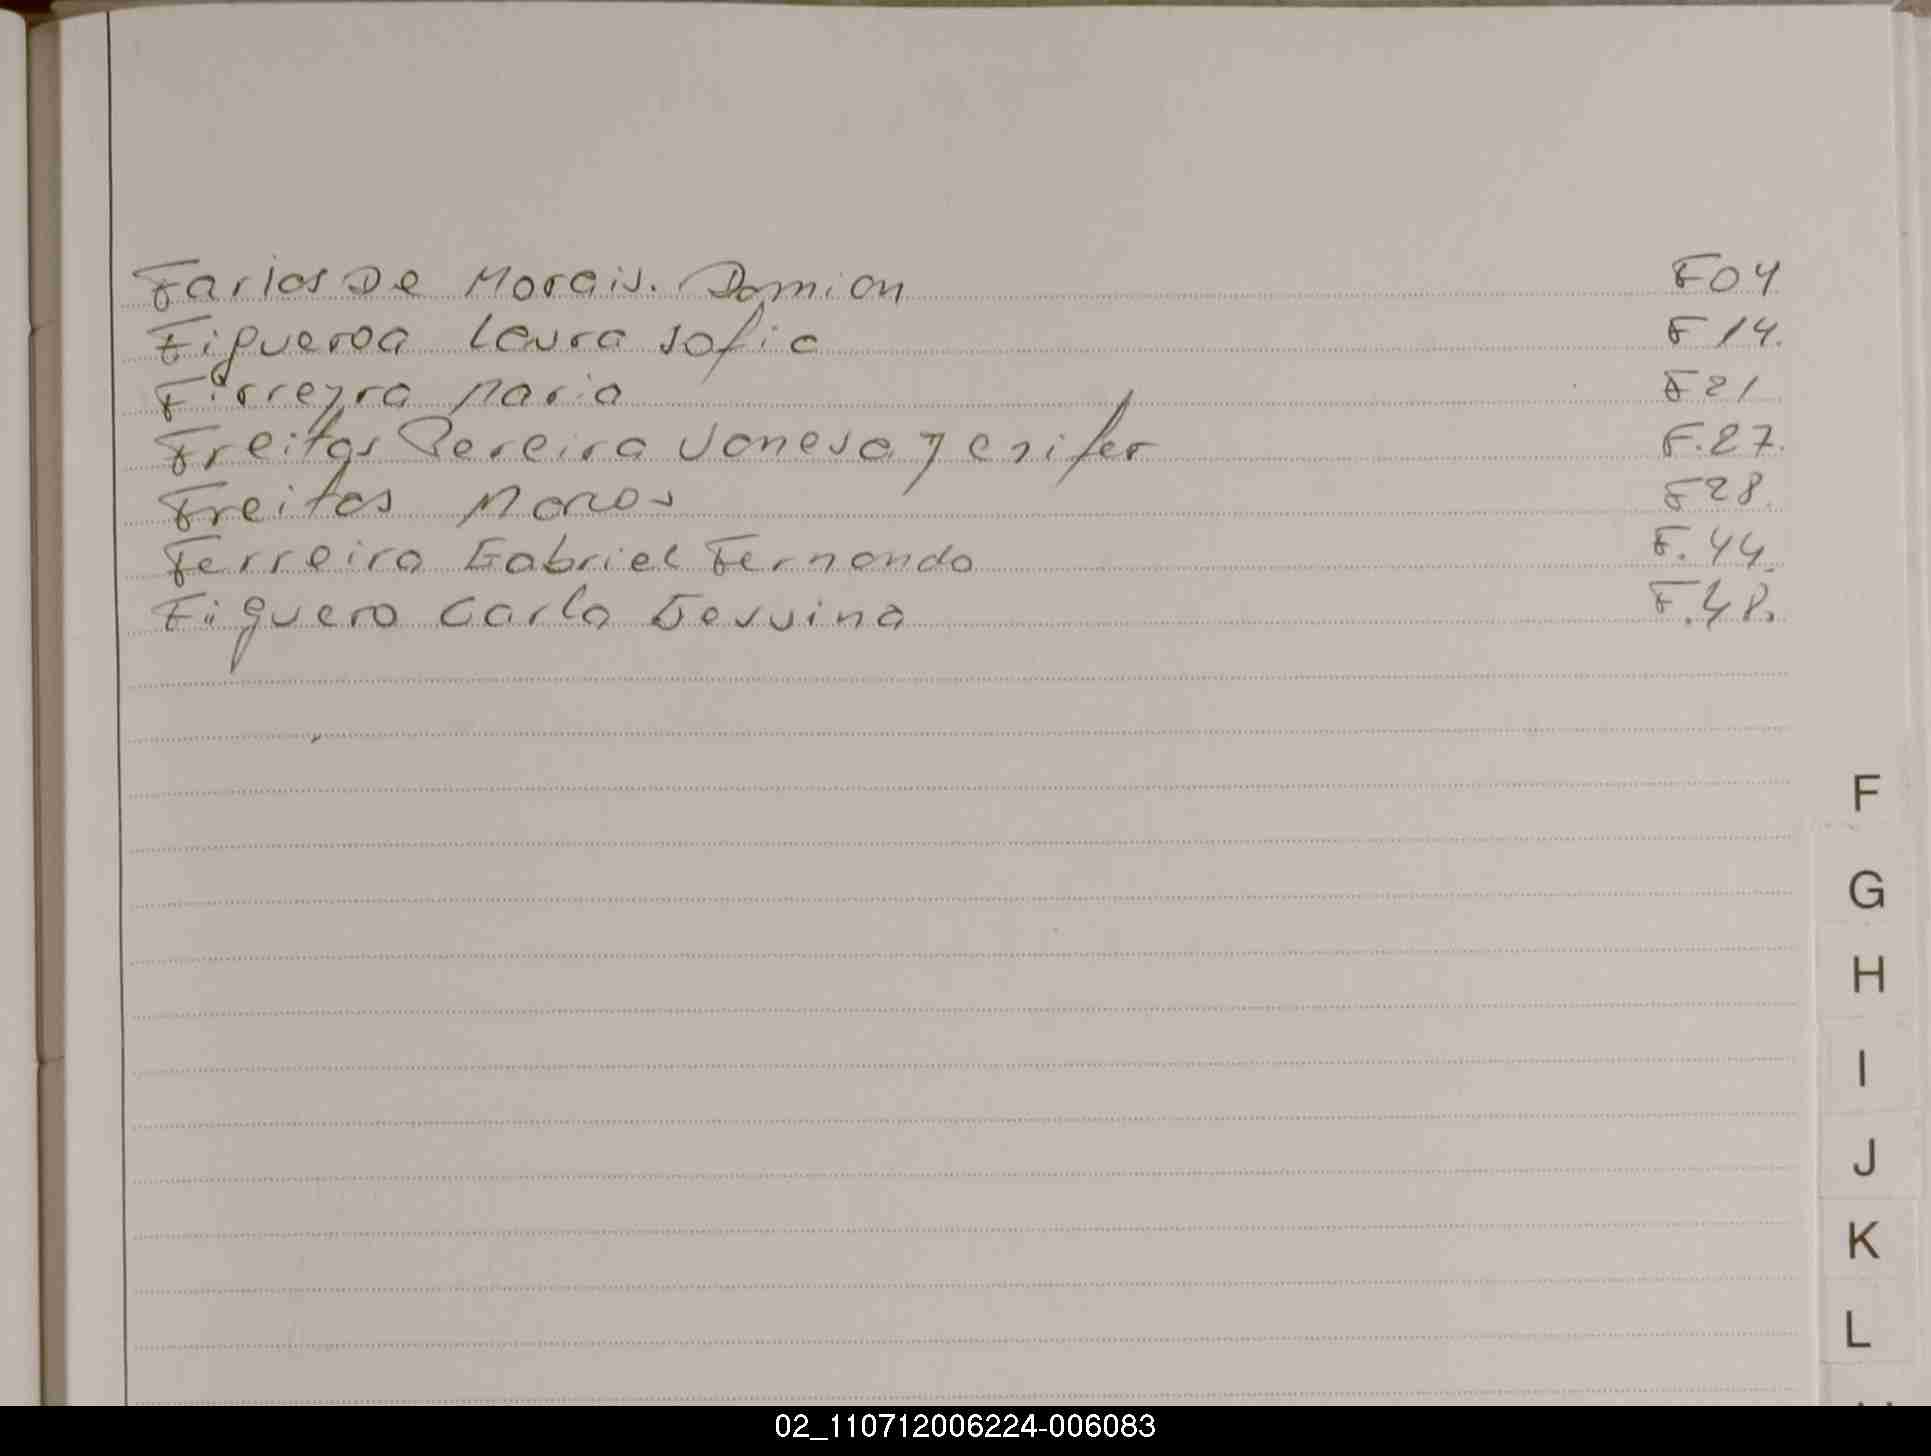 Farias De Morais. Damian F04
Figueroa Laura Sofia F 14.
Firreyra Maria F21
Freitas Pereira Vanesa Jenifer F.27.
Freitas Marcos F28.
Ferreira Gabriel Fernando F.44.
Figuero Carla Jessina F.48.
F
G
H
I
J
K
L
02_110712006224-006083